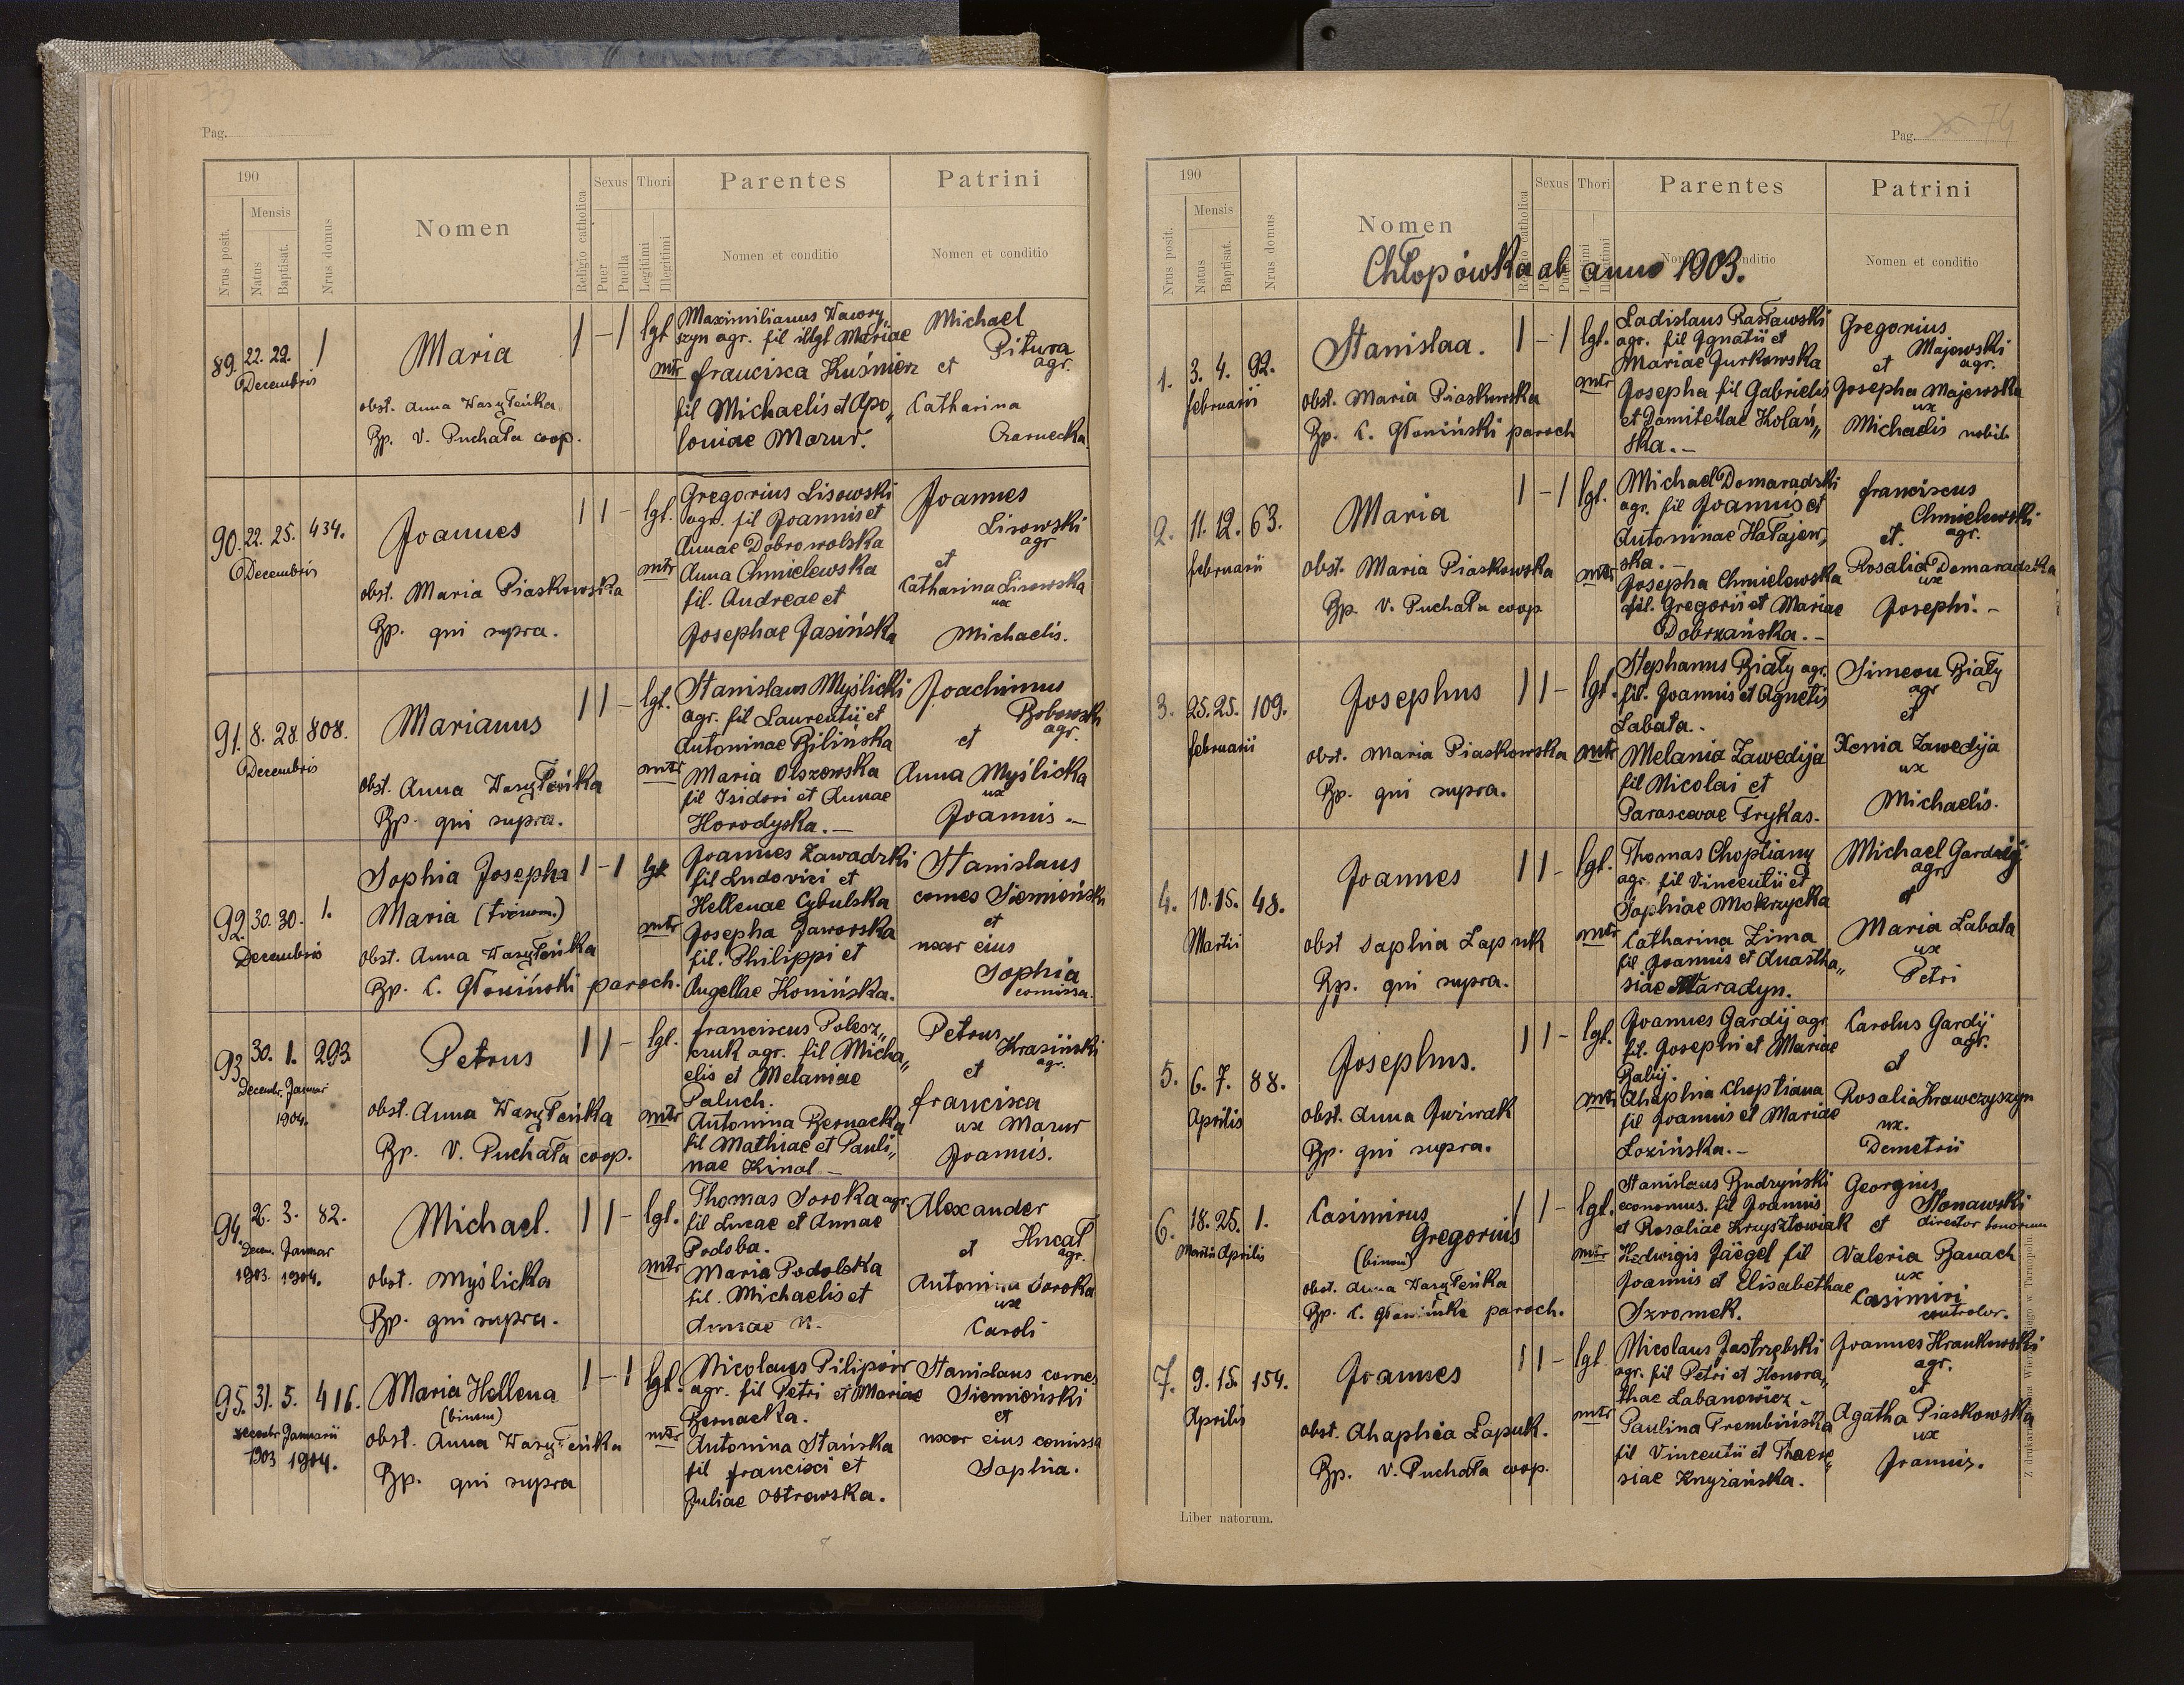 73
Pag.
190
Nrus posit.
Mensis
Natus
Baptisat.
Nrus domus
Nomen
Religio catholica
Sexus
Puer
Puella
Thori
Legitimi
Illegitimi
Parentes
Nomen et conditio
Patrini
Nomen et conditio
89. 22. 22. 1
Decembris
Maria
obst. Anna Wasyleńka
Bp. V. Puchała coop.
1 – 1 lgl
Maximilianus Wawry„
szyn agr. fil illgl Mariae
mtr francisca Kuśnierz
fil Michaelis et Apo„
loniae Mazur.
Michael
Pitura
agr.
et
Catharina
Czarnecka
90. 22. 25. 434.
Decembris
Joannes
obst. Maria Piaskowska
Bp. qui supra.
1 1 – lgl.
Gregorius Lisowski
agr. fil Joannis et
Annae Dobrowolska
mtr Anna Chmielewska
fil. Andreae et
Josephae Jasińska
Joannes
Lisowski
agr
et
Catharina Lisowska
ux
Michaelis.
91. 8. 28. 808.
Decembris
Marianus
obst. Anna Wasyleńka
Bp. qui supra.
1 1 – lgl.
Stanislaus Myślicki
agr. fil Laurentii et
Antoninae Bilińska
mtr Maria Olszewska
fil Isidori et Annae
Horodyska. –
Joachimus
Bobowski
agr.
et
Anna Myślicka
ux
Joannis –
92. 30. 30. 1.
Decembris
Sophia Josepha
Maria (trinom.)
obst. Anna Wasyleńka
Bp. C. Głowiński paroch.
1 – 1 lgl.
Joannes Zawadzki
fil Ludovici et
Hellenae Cybulska
mtr Josepha Jaworska
fil. Philippi et
Angellae Konińska.
Stanislaus
comes Siemieński
et
uxor eius
Sophia
comissa.
93. 30. 1. 293
Decembr. Januar
1904.
Petrus
obst. Anna Wasyleńka
Bp. V. Puchała coop.
1 1 – lgl.
franciscus Polesz„
czuk agr. fil Micha„
elis et Melaniae
Paluch.
mtr Antonina Bernacka
fil Mathiae et Pauli„
nae Kinal –
Petrus
Krasiński
agr.
et
francisca
ux Mazur
Joannis.
94. 26. 3. 82.
Decem. Januar
1903. 1904.
Michael.
obst. Myślicka
Bp. qui supra.
1 1 – lgl.
Thomas Soroka agr.
fil Lucae et Annae
Podsba.
mtr Maria Podolska
fil. Michaelis et
Annae N.
Alexander
Hucał
agr.
et
Antonina Soroka
ux
Caroli
95. 31. 5. 416.
Decembr Januarii
1903 1904.
Maria Hellena
(binom)
obst. Anna Wasyleńka
Bp. qui supra
1 – 1 lgl.
Nicolaus Pilipów
agr. fil Petri et Mariae
Bernacka.
mtr Antonina Stańska
fil francisci et
Juliae Ostrowska.
Stanislaus comes
Siemieński
et
uxor eius comissa
Sophia.
Pag. 74
190
Nrus posit.
Mensis
Natus
Baptisat.
Nrus domus
Nomen
Sexus
Thori
Parentes
Nomen et conditio
Patrini
Nomen et conditio
Chłopówka ab anno 1903.
1. 3. 4. 92.
februarii
Stanislaa.
obst. Maria Piaskowska
Bp. C. Głowiński paroch
1 – 1 lgl.
Ladislaus Rasławski
agr. fil Ignatii et
Mariae Jurkowska
mtr Josepha fil Gabrielis
et Domitellae Kolań„
ska. –
Gregorius
Majewski
agr.
et
Josepha Majewska
ux
Michaelis nobil
2. 11. 12. 63.
februarii
Maria
obst. Maria Piaskowska
Bp. V. Puchała coop
1 – 1 lgl.
Michael Domaradzki
agr. fil Joannis et
Antoninae Hałajew„
ska. –
mtr Josepha Chmielewska
fil. Gregorii et Mariae
Dobrzańska. –
franciscus
Chmielewski
agr.
et.
Rosalia Domaradzka
ux
Josephi. –
3. 25. 25. 109.
februarii
Josephus
obst. Maria Piaskowska
Bp. qui supra.
1 1 – lgl.
Stephanus Biały agr.
fil. Joannis et Agnetis
Łabata. –
mtr Melania Zawedija
fil Nicolai et
Parascevae Trykas.
Simeon Biały
agr
et
Xenia Zawedija
ux
Michaelis.
4. 10. 15. 48.
Martii
Joannes
obst Sophia Łapuk
Bp. qui supra.
1 1 – lgl.
Thomas Choptiany
agr. fil Vincentii et
Sophiae Mokrzycka
mtr Catharina Zima
fil Joannis et Anastha„
siae Maradyn.
Michael Gardij
agr
et
Maria Łabata
ux
Petri
5. 6. 7. 88.
Aprilis
Josephus.
obst. Anna Juziwak
Bp. qui supra.
1 1 – lgl.
Joannes Gardij agr
fil. Josephi et Mariae
Balij.
mtr Ahaphia Choptiana
fil Joannis et Mariae
Łozińska. –
Carolus Gardij
agr.
et
Rosalia Krawczyszyn
ux.
Demetrii
6. 18. 25. 1.
Martii Aprilis
Casimirus
Gregorius
(binom)
obst. Anna Wasyleńka
Bp. C. Głowiński paroch.
1 1 – lgl.
Stanislaus Budzyński
economus. fil Joannis
et Rosaliae Krzysztowiak
mtr Hedwigis Jäegel fil
Joannis et Elisabethae
Szromek.
Georgius
Słonawski
et director bonorum
Valeria Banach
ux
Casimiri
controlor.
7. 9. 15. 154.
Aprilis
Joannes
obst. Ahaphia Łapuk.
Bp. V. Puchała coop.
1 1 – lgl.
Nicolaus Jastrzębski
agr. fil Petri et Honora„
thae Łabanowicz –
mtr Paulina Trembińska
fil Vincentii et There„
siae Knyzańska.
Joannes Krankowski
agr.
et
Agatha Piaskowska
ux
Joannis.
Liber natorum.